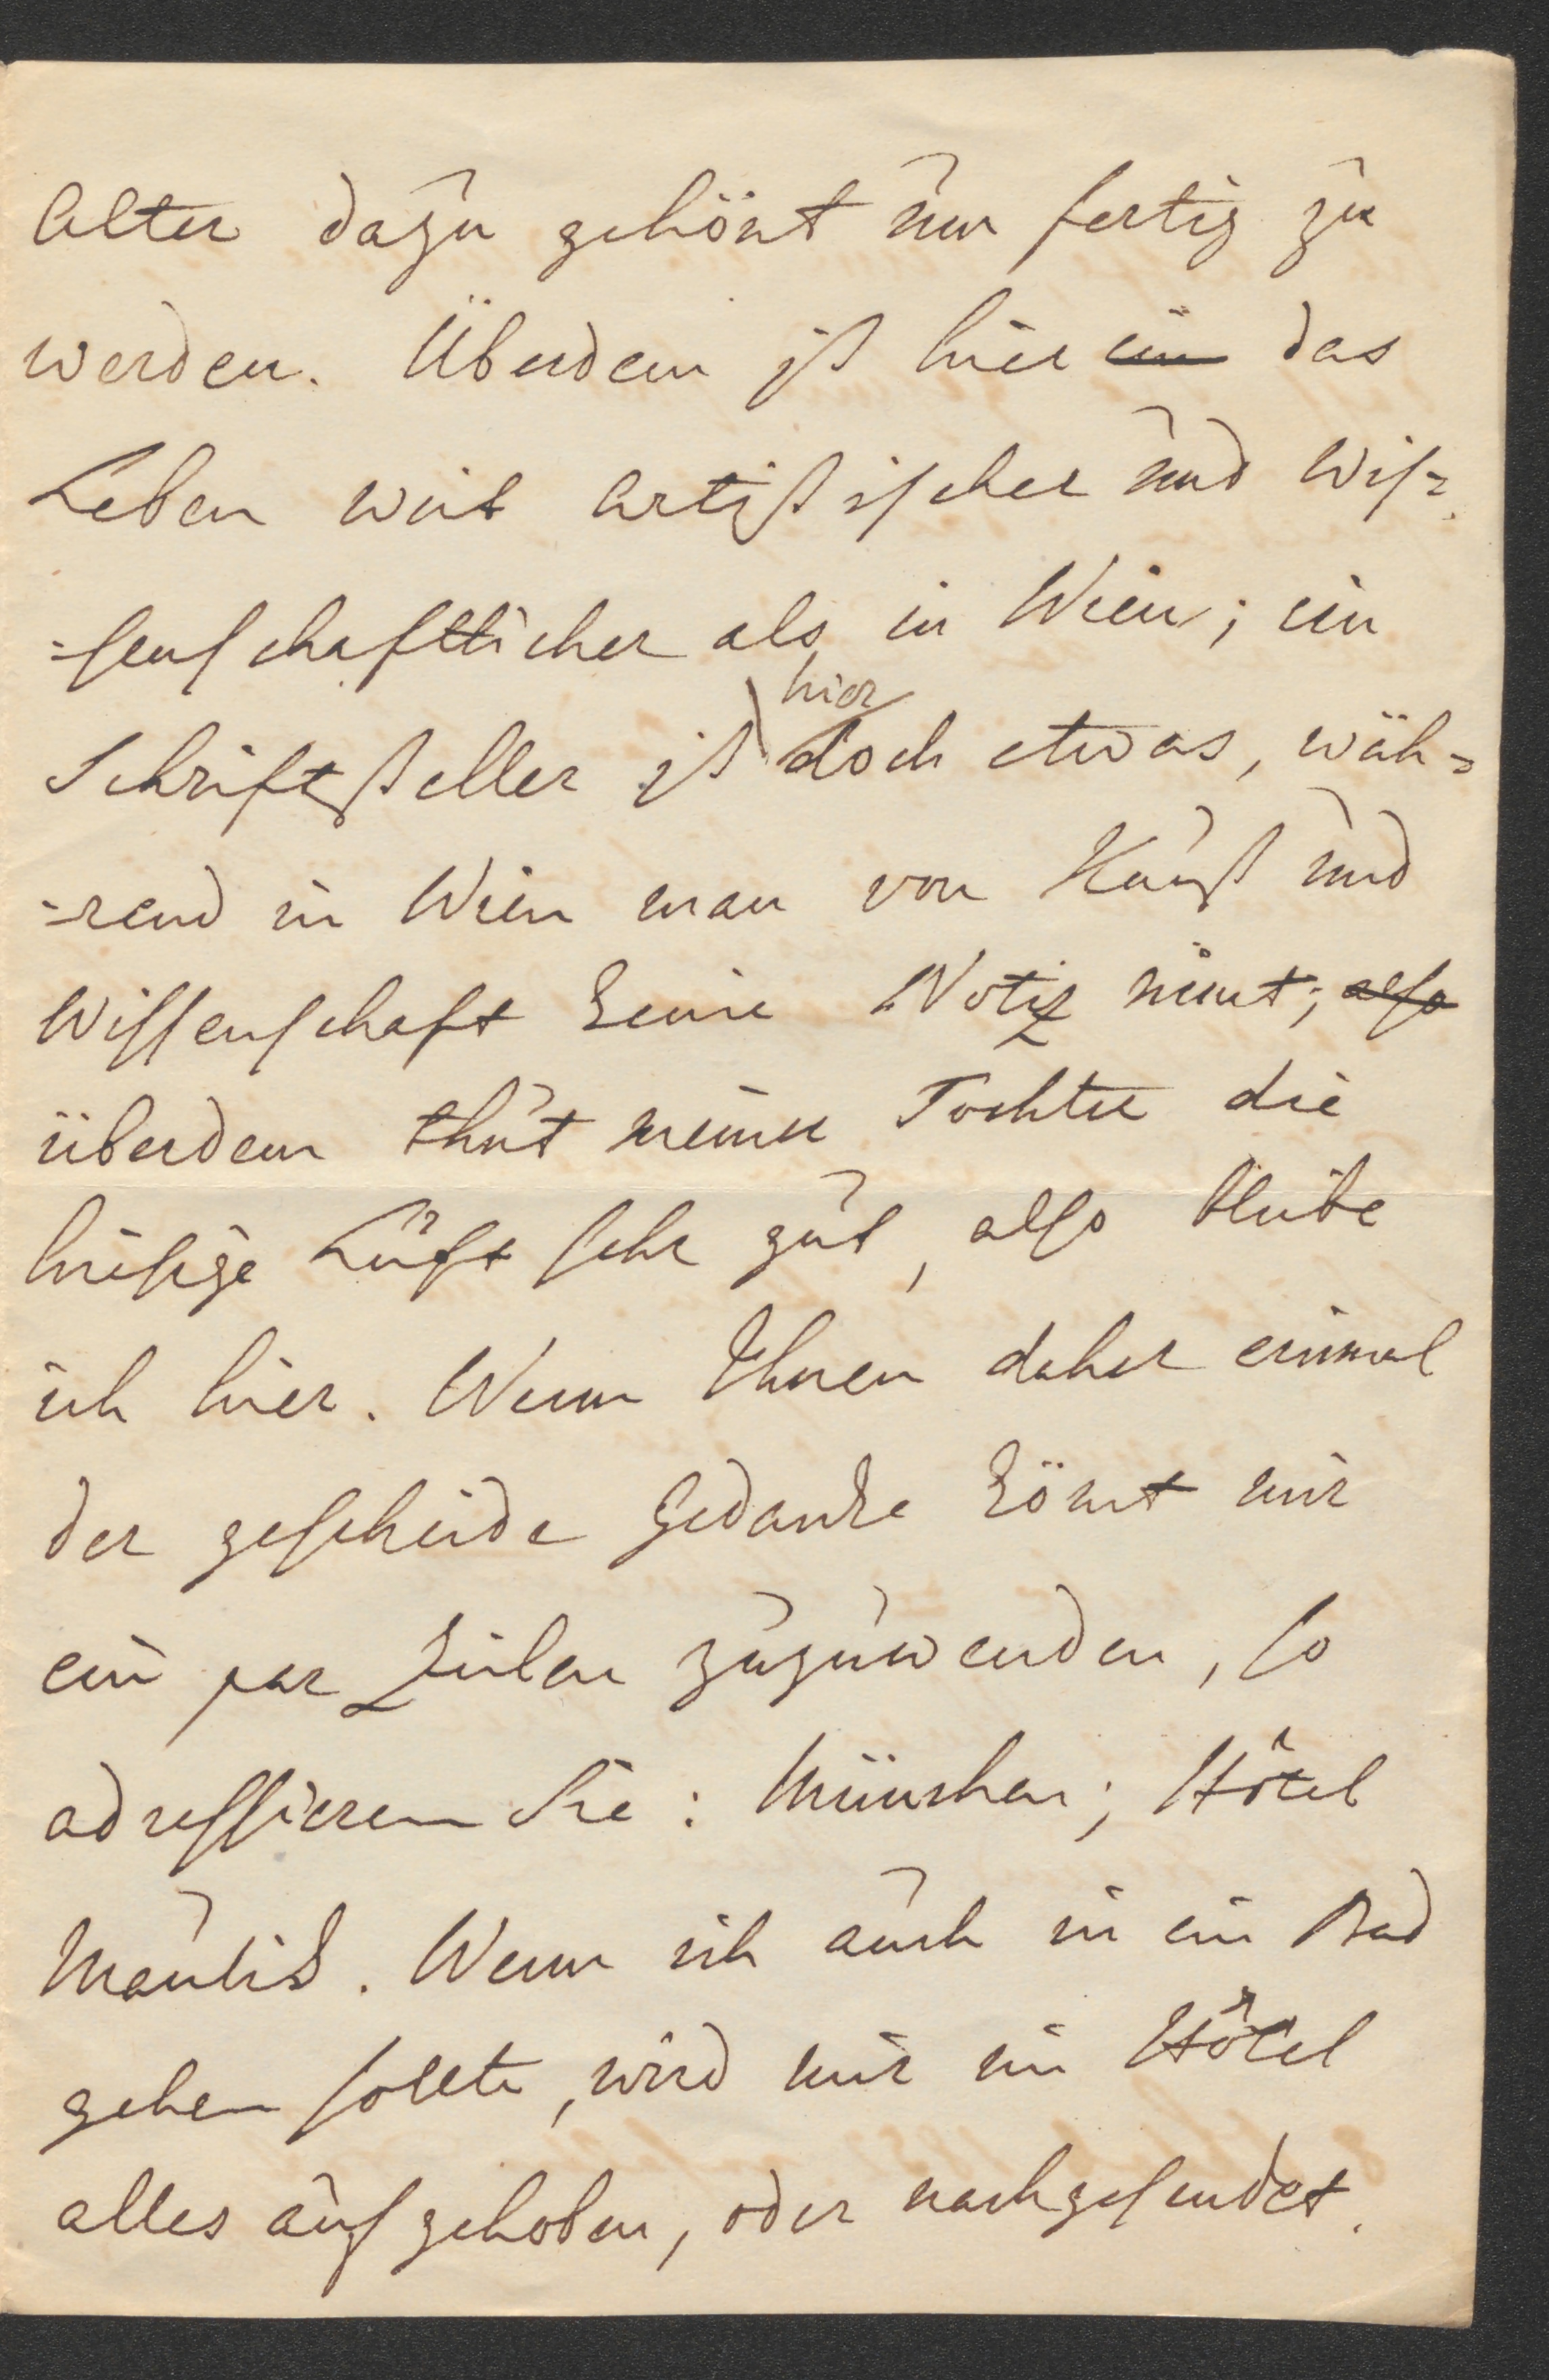 Alter dazu gehört um fertig zu
werden. Überdem ist hier ein das
Leben weit artistischer und wis=
=senschaftlicher als in Wien; ein
hier
Schriftsteller ist doch etwas, wäh=
=rend in Wien man von Kunst und
Wissenschaft keine Notiz nimt; also
überdem thut meiner Tochter die
hiesige Luft sehr gut, also bleibe
ich hier. Wenn Ihnen daher einmal
der gescheide Gedanke kömt mir
ein par Zeilen zuzuwenden, so
adressieren Sie: München; Hôtel
Maulik. Wenn ich auch in ein Bad
gehen sollte, wird mir im Hôtel
alles aufgehoben, oder nachgesendet.